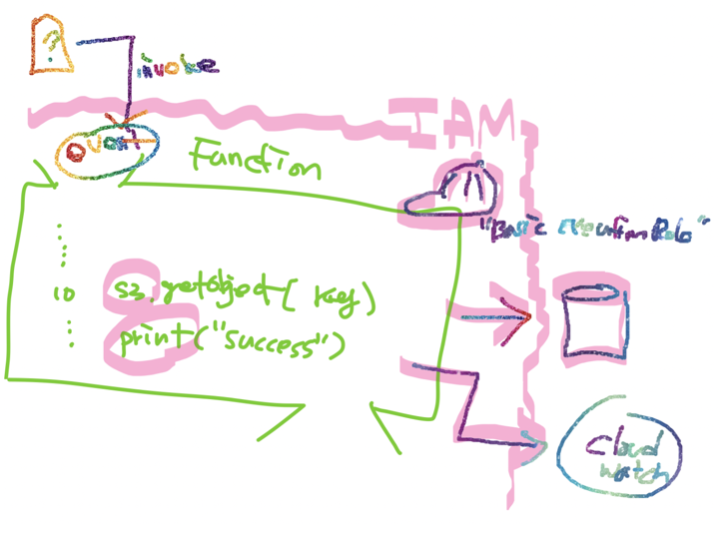 ?
invoke
IAM
event
Function
"Basic Execution Role"
10 s3.getobject(key)
print("success")
cloud
watch